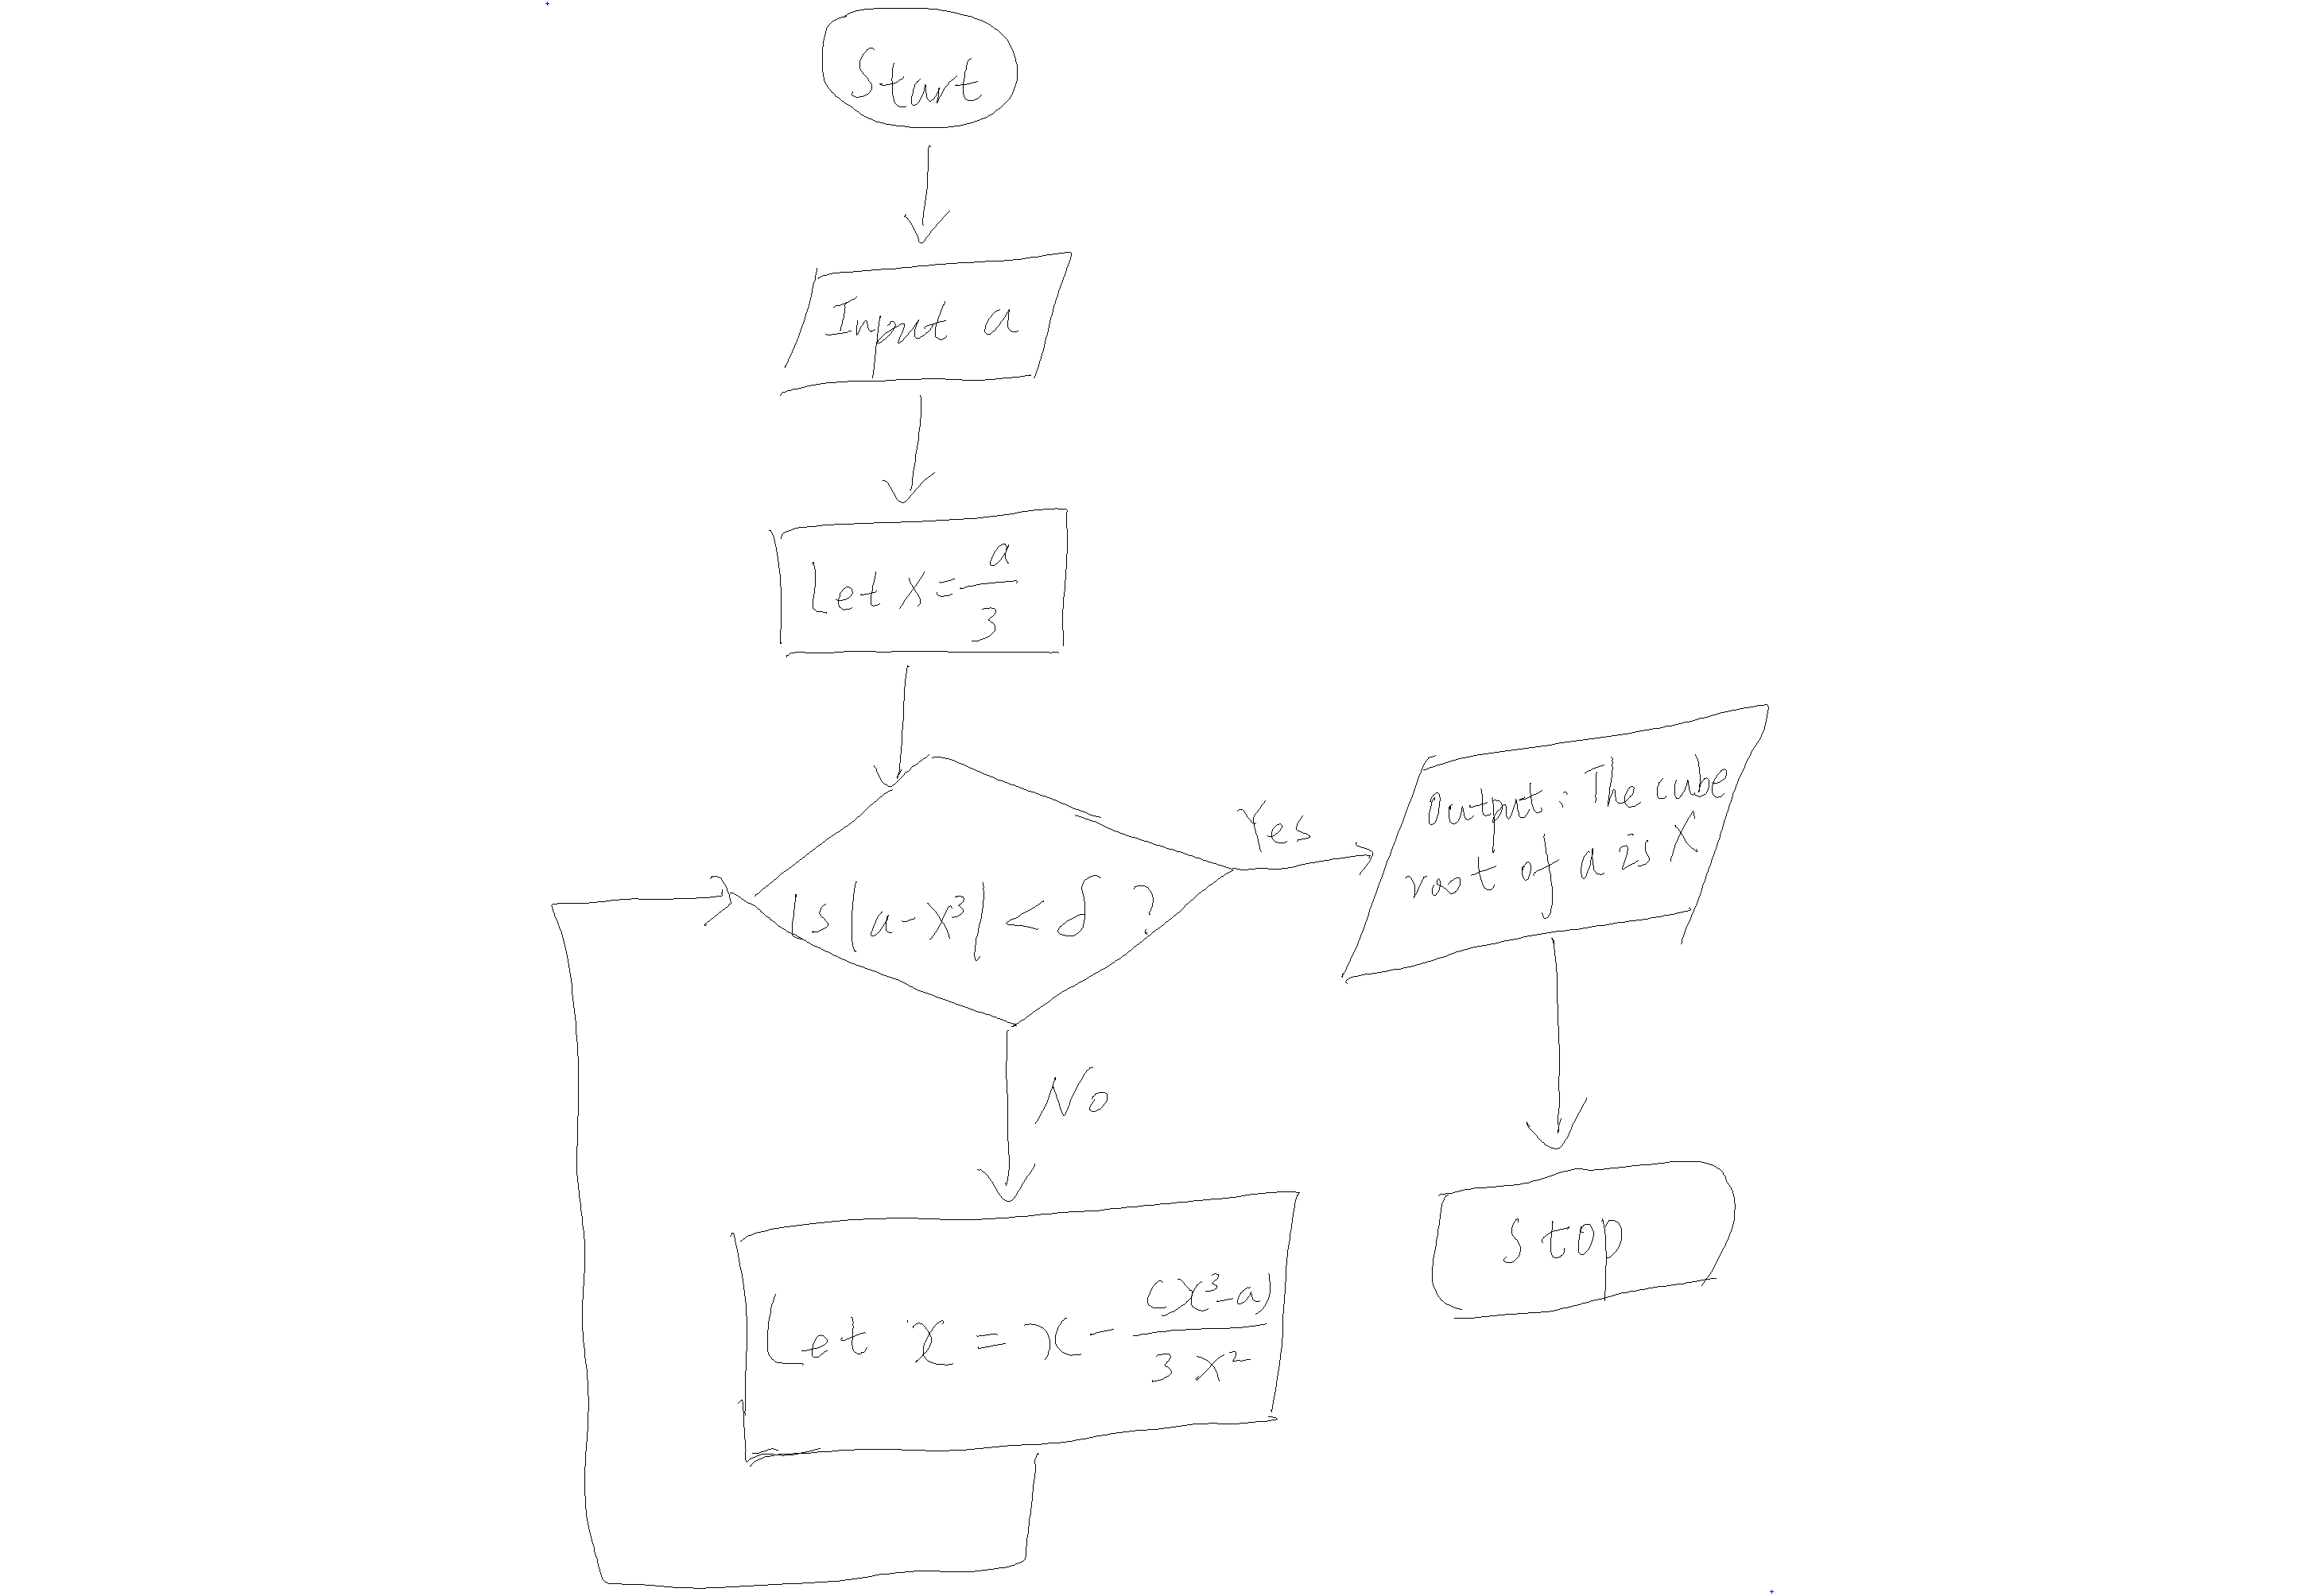 Start
Input a
Let x = a/3
Is |a - x³| < δ ?
Yes
Output: The cube
root of a is x
No
Let x = x - (x³-a)/3x²
Stop